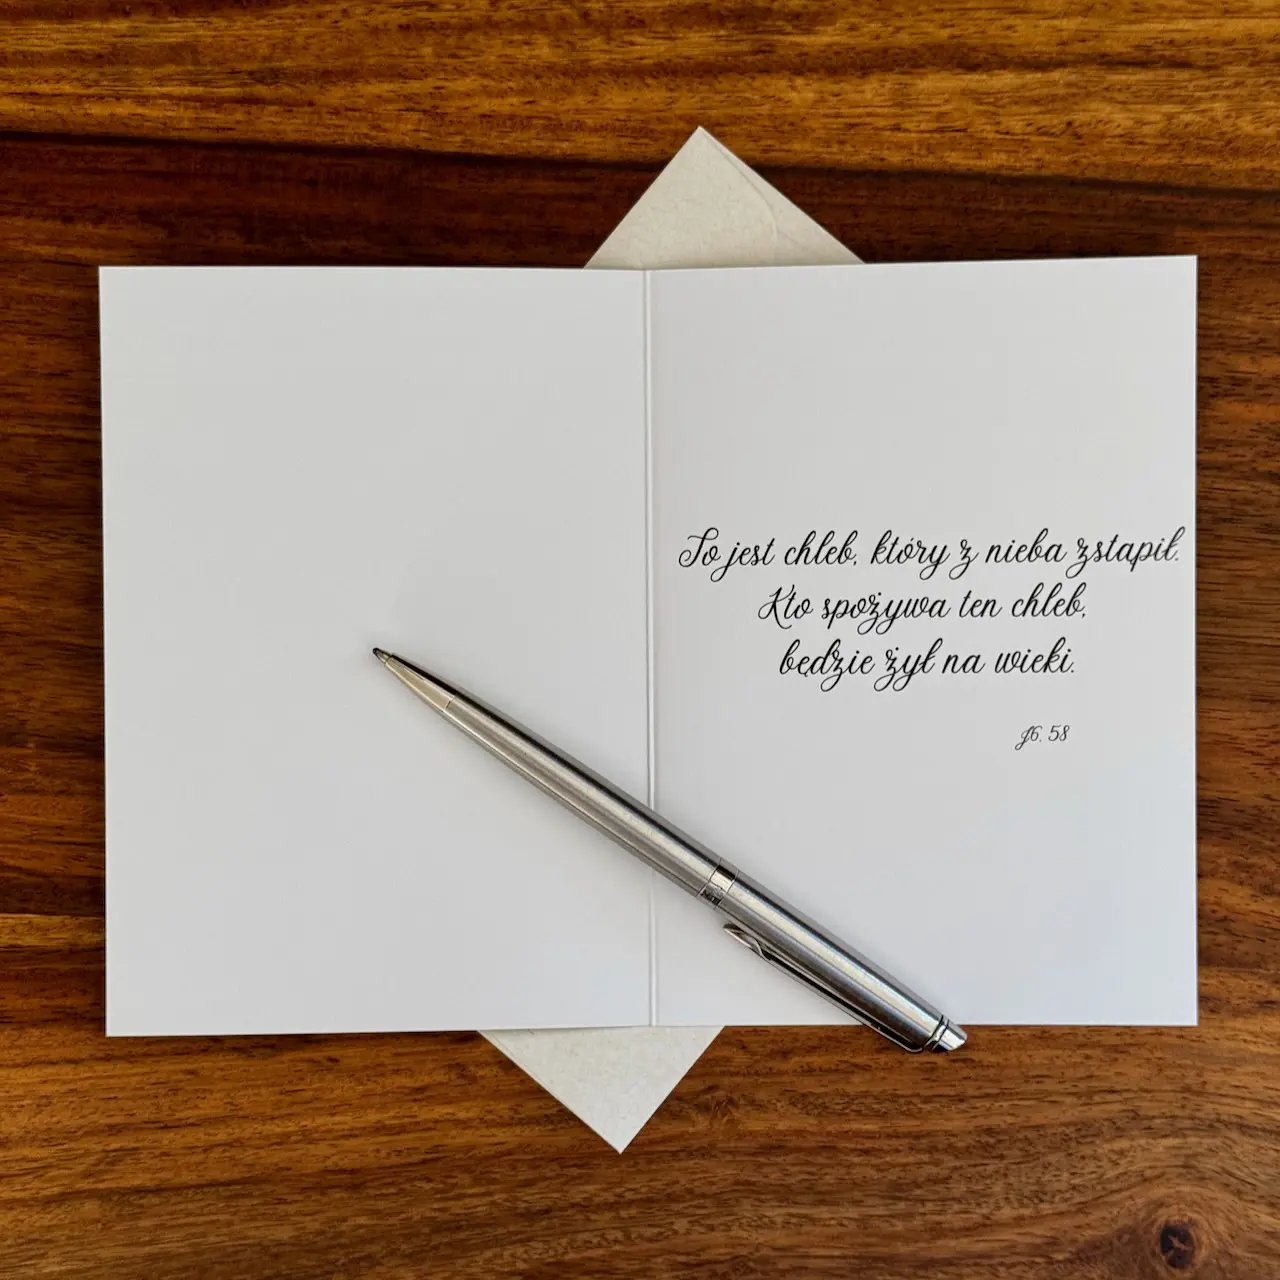 To jest chleb, który z nieba zstąpił.
Kto spożywa ten chleb,
będzie żył na wieki.
J6, 58